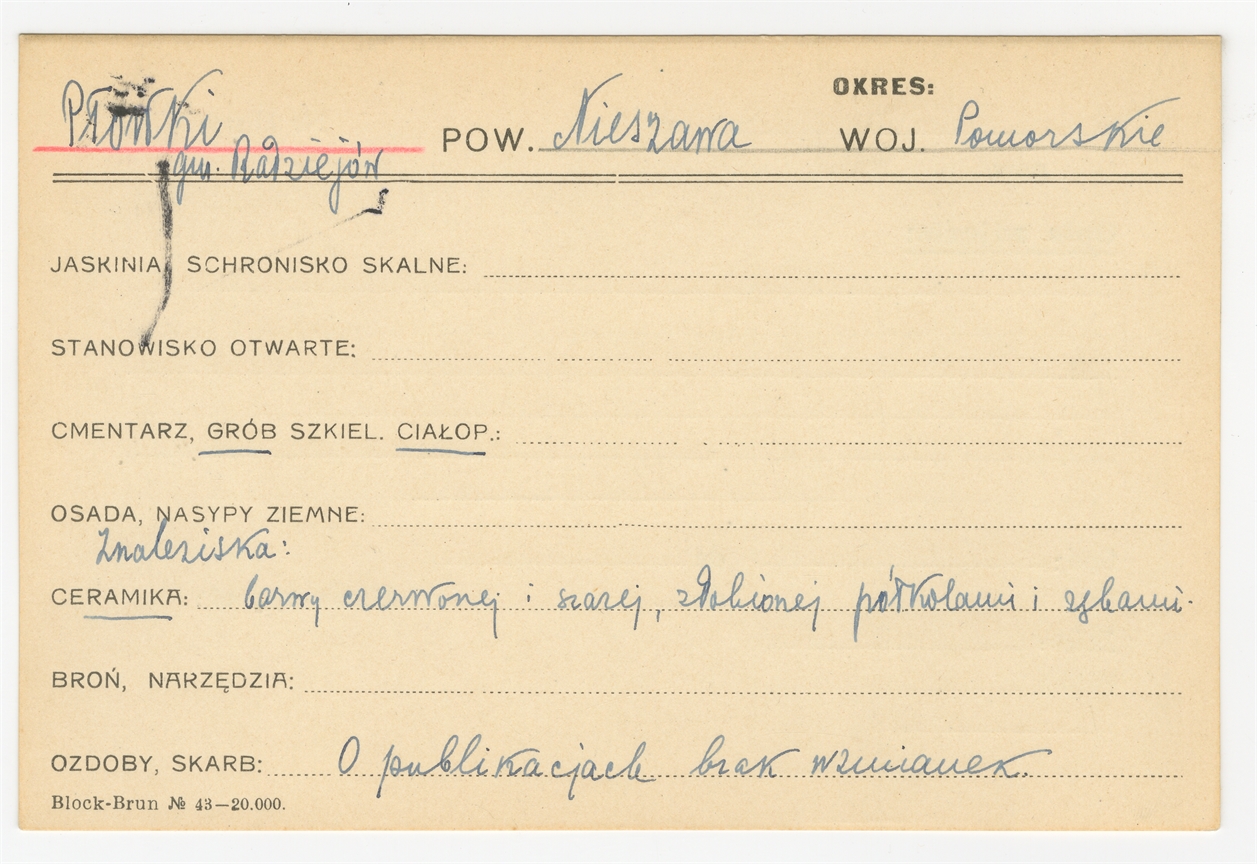 OKRES:
Płowki POW. Nieszawa WOJ. Pomorskie
gm. Radziejów
JASKINIA, SCHRONISKO SKALNE:
STANOWISKO OTWARTE:
CMENTARZ, GRÓB SZKIEL. CIAŁOP.:
OSADA, NASYPY ZIEMNE:
Znaleziska:
CERAMIKA: barwy czerwonej i szarej, złobionej półkolami i zębami.
BROŃ, NARZĘDZIA:
OZDOBY, SKARB: O publikacjach brak wzmianek.
Block-Brun № 43—20.000.